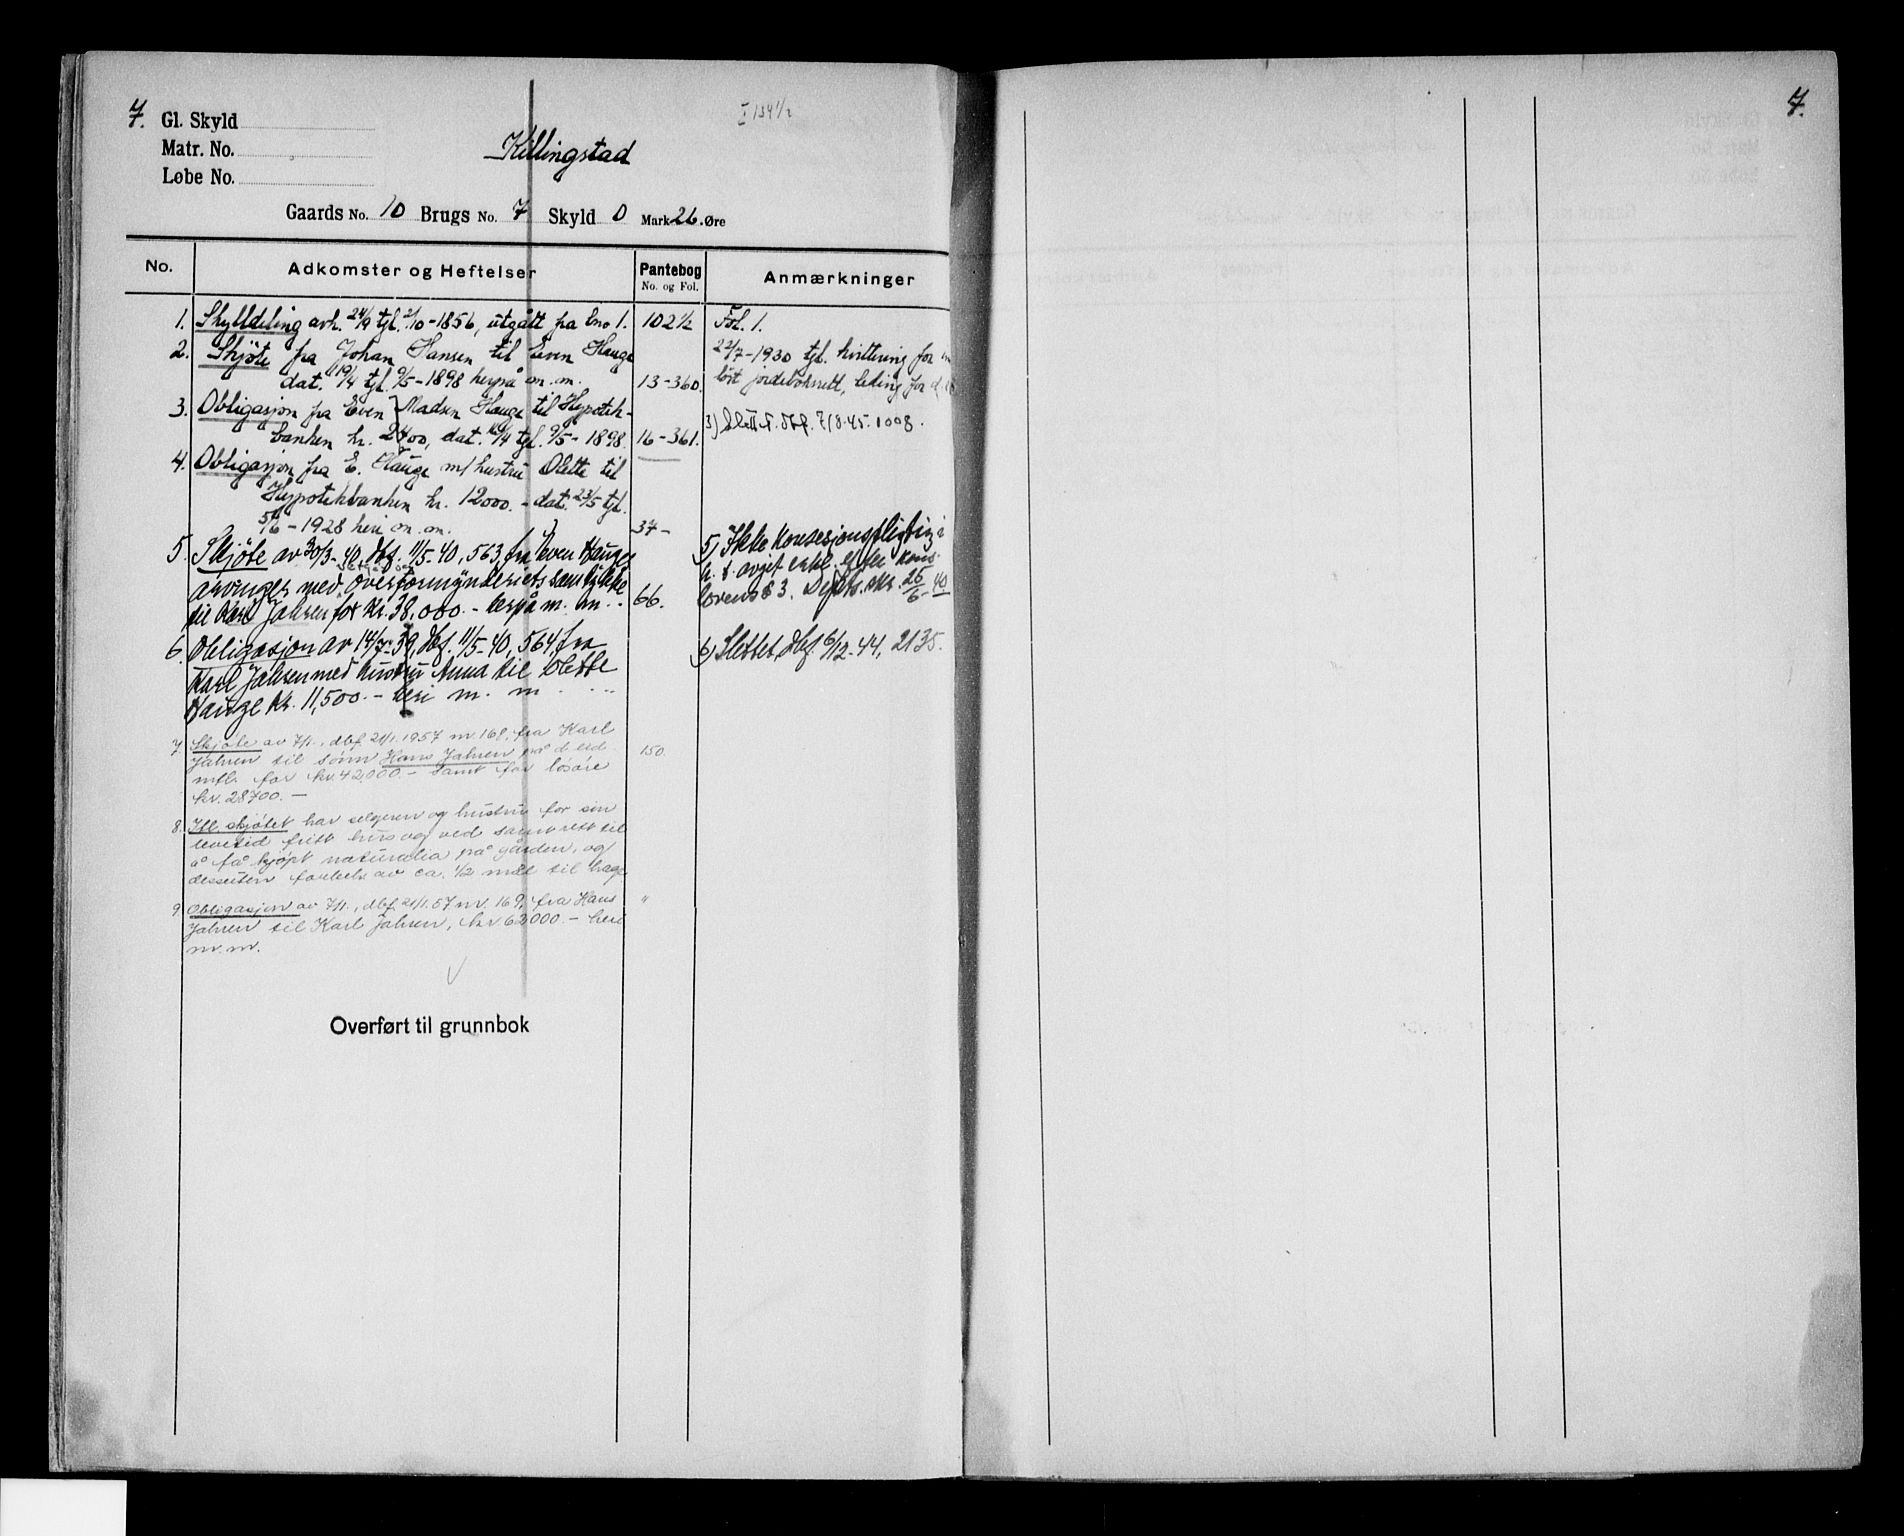 7.
I 134 1/2
Gl. Skyld
Matr. No.
Løbe No.
Killingstad
Gaards No. 10 Brugs No. 7 Skyld 0 Mark 26 Øre
No. Adkomster og Heftelser Pantebog No. og Fol. Anmærkninger
1. Skylddeling avh. 24/9 tgl. 2/10-1856, utgått fra bno 1. 102 1/2 Fol. 1.
2. Skjøte fra Johan Hansen til Even Hauge
dat. 19/4 tgl. 9/5-1898 herpå m.m. 13-360.
22/7-1930 tgl. kvittering for
løst jordeboksrett, hefting for
3. Obligasjon fra Even Madsen Hauge til Hypotek-
banken kr. 2400, dat. 19/4 tgl. 9/5-1898. 16-361.
3) Slettet. Dbf. 7/8-45. 1008.
4. Obligasjon fra E. Hauge m/hustru Olette til
Hypotekbanken kr. 12000.- dat. 23/5 tgl.
5/6-1928 heri m.m. 37-
5. Skjøte av 30/3-40, dbf. 11/5-40, 563, fra Even Hauges
arvinger med overformynderiets samtykke
til Karl Jahren for kr. 38.000.- herpå m.m. 66.
5) Ikke konsesjonspligtig i
h. t. avgjt erkl. efter kons.
lovens § 3. Depts. skr. 25/6-40
6. Obligasjon av 14/7-39, dbf. 11/5-40, 564, fra
Karl Jahren med hustru Anna til Olette
Hauge kr. 11,500.- heri m. m.
6) Slettet, dbf. 6/12-44, 2135.
7. Skjøte av 7/1., dbf. 21/1.1957 nr. 168, fra Karl
Jahren til sønn Hans Jahren på d. eid.
mfl. for kr. 42,000.- samt for løsøre
kr. 28700.- 150.
8. Ifl. skjøtet har selgeren og hustru for sin
levetid fritt hus og ved samt rett til
å få kjøpt naturalia på gården, og
dessuten forbeh. av ca. 1/2 mål til hage
9. Obligasjon av 7/1., dbf. 21/1.57 nr. 169, fra Hans
Jahren til Karl Jahren, kr. 62,000.- heri
m.m. "
Overført til grunnbok
7.